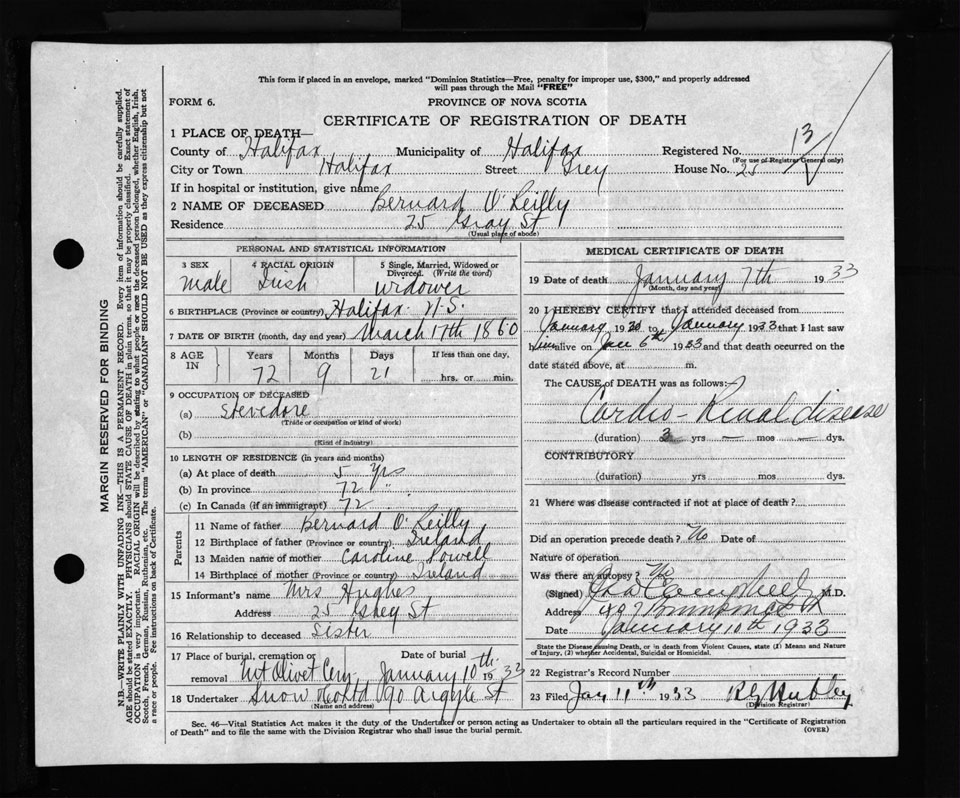 This form if placed in an envelope, marked "Dominion Statistics—Free, penalty for improper use, $300," and properly addressed
will pass through the Mail "FREE"
FORM 6.
PROVINCE OF NOVA SCOTIA
CERTIFICATE OF REGISTRATION OF DEATH
1 PLACE OF DEATH—
County of Halifax Municipality of Halifax Registered No. 13
(For use of Registrar General only)
City or Town Halifax Street Grey House No. 25
If in hospital or institution, give name
2 NAME OF DECEASED Bernard O'Reilly
Residence 25 Gray St
(Usual place of abode)
PERSONAL AND STATISTICAL INFORMATION
3 SEX 4 RACIAL ORIGIN 5 Single, Married, Widowed or
Divorced. (Write the word)
male Irish widower
6 BIRTHPLACE (Province or country) Halifax N.S.
7 DATE OF BIRTH (month, day and year) March 17th 1860
8 AGE IN Years Months Days If less than one day,
72 9 21 hrs. or min.
9 OCCUPATION OF DECEASED
(a) Stevedore
(Trade of occupation or kind of work)
(b)
(Kind of industry)
10 LENGTH OF RESIDENCE (in years and months)
(a) At place of death 5 yrs
(b) In province 72 "
(c) In Canada (if an immigrant) 72
Parents
11 Name of father Bernard O'Reilly
12 Birthplace of father (Province or country) Ireland
13 Maiden name of mother Caroline Powell
14 Birthplace of mother (Province or country) Ireland
15 Informant's name Mrs Hughes
Address 25 Grey St
16 Relationship to deceased Sister
17 Place of burial, cremation or Date of burial
removal Mt Olivet Cem January 10th 1933
18 Undertaker Snow & Co Ltd 90 Argyle St
(Name and address)
MEDICAL CERTIFICATE OF DEATH
19 Date of death January 7th 1933
(Month, day and year)
20 I HEREBY CERTIFY that I attended deceased from
January 1930 to January 1933 that I last saw
him alive on Jan 6th 1933 and that death occurred on the
date stated above, at m.
The CAUSE of DEATH was as follows:
Cardio-Renal disease
(duration) 3 yrs — mos — dys.
CONTRIBUTORY
(duration) yrs mos dys.
21 Where was disease contracted if not at place of death?
Did an operation precede death? No Date of
Nature of operation
Was there an autopsy? No
(Signed) Campbell M.D.
Address 407
Date January 10th 1933
State the Disease causing Death, or in death from Violent Causes, state (1) Means and Nature
of Injury, (2) whether Accidental, Suicidal or Homicidal.
22 Registrar's Record Number
23 Filed Jan 11th 1933 Hubley
(Division Registrar)
Sec. 46—Vital Statistics Act makes it the duty of the Undertaker or person acting as Undertaker to obtain all the particulars required in the "Certificate of Registration
of Death" and to file the same with the Division Registrar who shall issue the burial permit. (OVER)
MARGIN RESERVED FOR BINDING
N.B.—WRITE PLAINLY WITH UNFADING INK—THIS IS A PERMANENT RECORD. Every item of information should be carefully supplied.
AGE should be stated EXACTLY. PHYSICIANS should STATE CAUSE OF DEATH in plain terms, so that it may be properly classified. Exact statement of
OCCUPATION is very important. RACIAL ORIGIN will be described by stating to what people or race the deceased person belonged, whether English, Irish,
Scotch, French, German, Russian, Ruthenian, etc. The terms "AMERICAN" or "CANADIAN" SHOULD NOT BE USED as they express citizenship but not
a race or people. Fee instructions on back of Certificate.